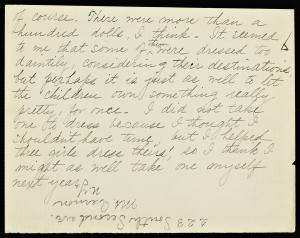 of course. There were more than a
hundred dolls, I think. It seemed
to me that some of them were dressed too
daintily, considering their destinations,
but perhaps it is just as well to let
the children own something really
pretty, for once. I did not take
one to dress because I thought I
shouldn't have time, but I helped
three girls dress theirs; so I think I
might as well take one myself
next year.
223 South Second Ave.
Mt. Vernon
N.Y.